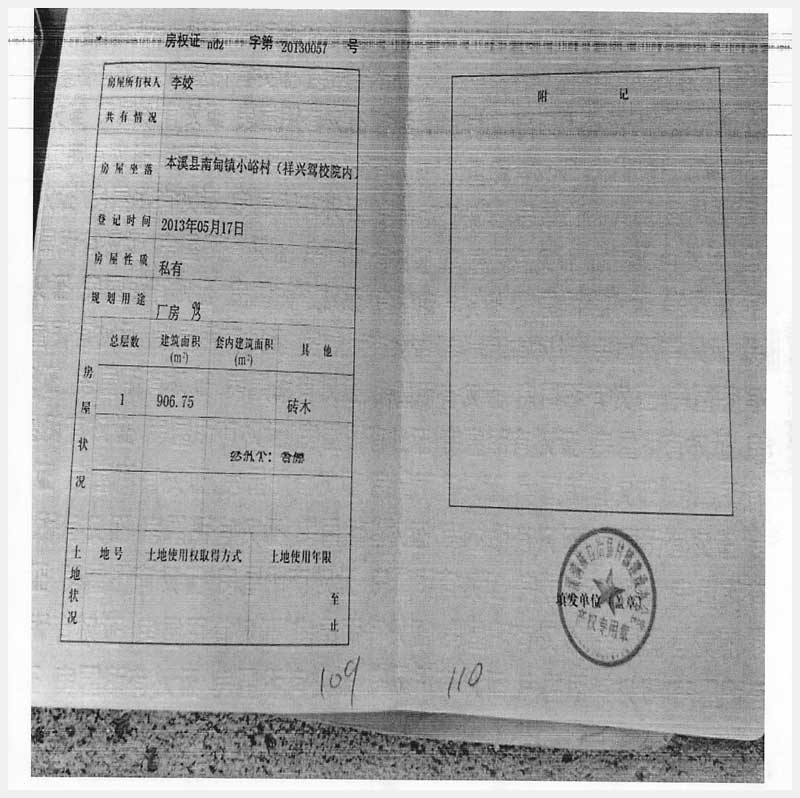 房权证 ndz 字第 20130057 号
房屋所有权人 李姣
共有情况
房屋坐落 本溪县南甸镇小峪村（祥兴驾校院内）
登记时间 2013年05月17日
房屋性质 私有
规划用途 厂房
房屋状况
总层数 建筑面积(m²) 套内建筑面积(m²) 其他
1 906.75 砖木
土地状况
地号 土地使用权取得方式 土地使用年限
至
止
109
附记
填发单位（盖章）
产权专用章
110